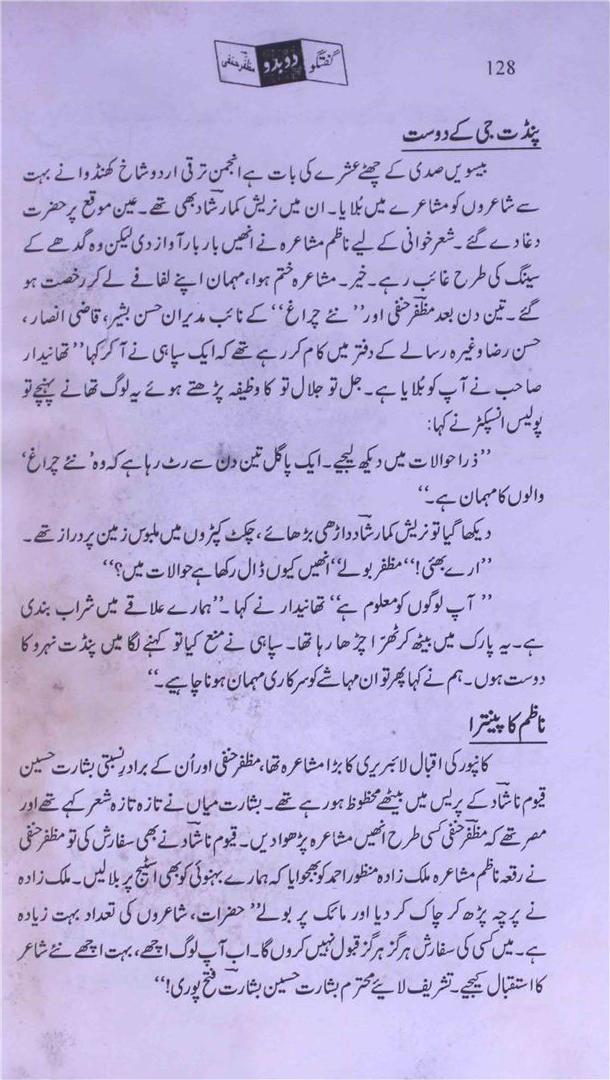 گفتگو دوبدو مظفر حنفی
128
پنڈت جی کے دوست
بیسویں صدی کے چھٹے عشرے کی بات ہے انجمن ترقی اردو شاخ کھنڈوا نے بہت
سے شاعروں کو مشاعرے میں بُلایا۔ ان میں نریش کمار شادؔ بھی تھے۔ عین موقع پر حضرت
دغا دے گئے۔ شعر خوانی کے لیے ناظم مشاعرہ نے انھیں بار بار آواز دی لیکن وہ گدھے کے
سینگ کی طرح غائب رہے۔ خیر۔ مشاعرہ ختم ہوا، مہمان اپنے لفافے لے کر رخصت ہو
گئے۔ تین دن بعد مظفرؔ حنفی اور ’’نئے چراغ‘‘ کے نائب مدیران حسن بشیر، قاضی انصار،
حسن رضا وغیرہ رسالے کے دفتر میں کام کر رہے تھے کہ ایک سپاہی نے آ کر کہا ’’تھانیدار
صاحب نے آپ کو بُلایا ہے۔ جل تو جلال تو کا وظیفہ پڑھتے ہوئے یہ لوگ تھانے پہنچے تو
پولیس انسپکٹر نے کہا:
’’ذرا حوالات میں دیکھ لیجیے۔ ایک پاگل تین دن سے رٹ رہا ہے کہ وہ ’نئے چراغ‘
والوں کا مہمان ہے۔‘‘
دیکھا گیا تو نریش کمار شادؔ داڑھی بڑھائے، چکٹ کپڑوں میں ملبوس زمین پر دراز تھے۔
’’ارے بھئی!‘‘ مظفر بولے ’’انھیں کیوں ڈال رکھا ہے حوالات میں؟‘‘
’’آپ لوگوں کو معلوم ہے‘‘ تھانیدار نے کہا۔ ’’ہمارے علاقے میں شراب بندی
ہے۔ یہ پارک میں بیٹھ کر ٹھرّا چڑھا رہا تھا۔ سپاہی نے منع کیا تو کہنے لگا میں پنڈت نہرو کا
دوست ہوں۔ ہم نے کہا پھر تو ان مہاشے کو سرکاری مہمان ہونا چاہیے۔‘‘
ناظم کا پینترا
کانپور کی اقبال لائبریری کا بڑا مشاعرہ تھا، مظفر حنفی اور اُن کے برادرِ نسبتی بشارت حسین
قیوم ناشادؔ کے پریس میں بیٹھے محظوظ ہو رہے تھے۔ بشارت میاں نے تازہ تازہ شعر کہے تھے اور
مصر تھے کہ مظفرؔ حنفی کسی طرح انھیں مشاعرہ پڑھوا دیں۔ قیوم ناشادؔ نے بھی سفارش کی تو مظفر حنفی
نے رقعہ ناظم مشاعرہ ملک زادہ منظور احمد کو بھجوایا کہ ہمارے بہنوئی کو بھی اسٹیج پر بلا لیں۔ ملک زادہ
نے پرچہ پڑھ کر چاک کر دیا اور مائک پر بولے ’’حضرات، شاعروں کی تعداد بہت زیادہ
ہے۔ میں کسی کی سفارش ہرگز ہرگز قبول نہیں کروں گا۔ اب آپ لوگ اچھے، بہت اچھے نئے شاعر
کا استقبال کیجیے۔ تشریف لائیے محترم بشارت حسین بشارتؔ فتح پوری!‘‘